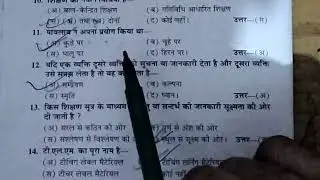 (अ) बाल-केन्द्रित शिक्षण (ब) गतिविधि आधारित शिक्षण
(स) अ तथा ब दोनों (द) कोई नहीं। उत्तर—(स)
11. पावलाव ने अपना प्रयोग किया था—
(अ) कुत्ते पर (ब) चूहे पर
(स) भालू पर (द) हिरन पर। उत्तर—(अ)
12. यदि एक व्यक्ति दूसरे व्यक्ति को सूचना या जानकारी देता है और दूसरा उसे
समझ लेता है तो वह
(अ) सम्प्रेषण (ब) कल्पना
(स) स्मृति (द) ध्यान। उत्तर—(अ)
13. किस शिक्षण सूत्र के माध्यम सन्दर्भ की जानकारी सूक्ष्मता की ओर
दी जाती है ?
(अ) सरल से कठिन की ओर पूर्ण से अंश की ओर
(स) संश्लेषण से विश्लेषण की ओर स्थूल से सूक्ष्म की ओर। उत्तर—
14. टी.एल.एम. का पूरा नाम है—
(अ) टीचिंग लेबल मैटेरियल टीचिंग लर्निंग मैटेरियल